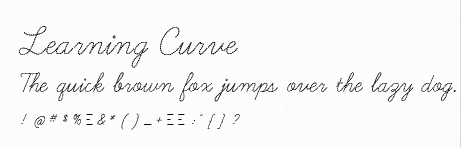 Learning Curve
The quick brown fox jumps over the lazy dog.
! @ # $ % Ξ & * ( ) _ + Ξ Ξ : " [ ] ?